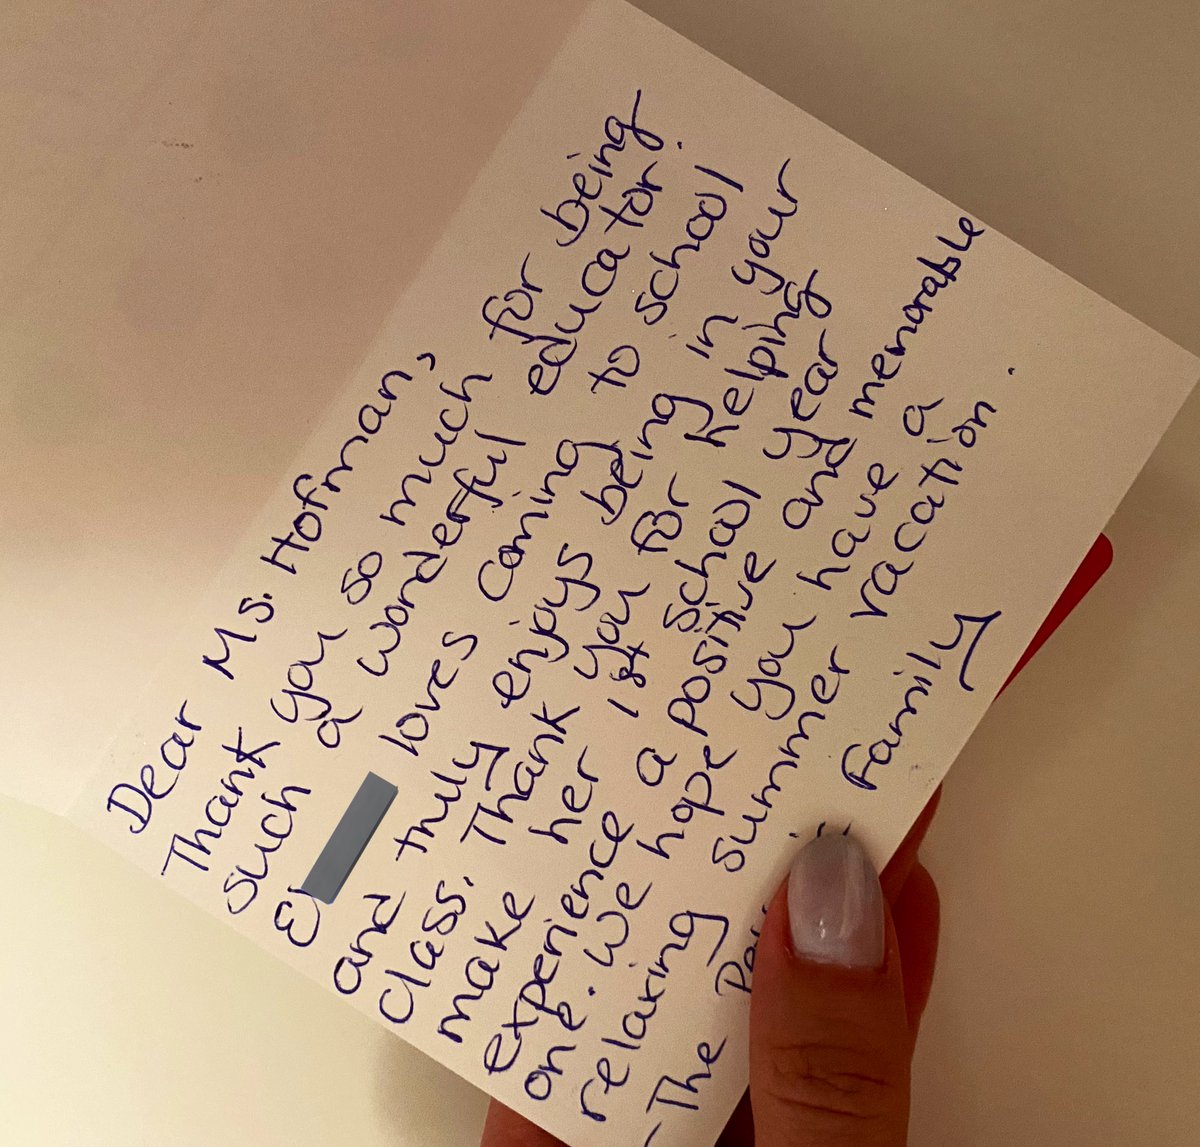 Dear Ms. Hofman,
Thank you so much for being
such a wonderful educator.
loves coming to school
and truly enjoys being in your
class. Thank you for helping
make her 1st school year
experience a positive and memorable
one. We hope you have a
relaxing summer vacation.
-The Family